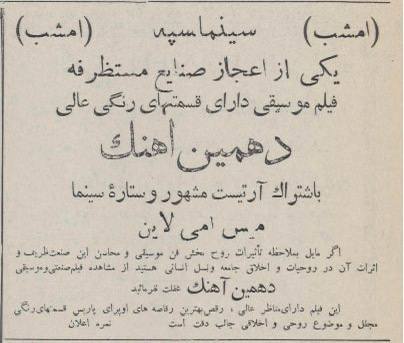 (امشب) سینما سپه (امشب)
یکی از اعجاز صنایع مستظرفه
فیلم موسیقی دارای قسمتهای رنگی عالی
دهمین آهنك
باشتراك آرتیست مشهور و ستارهٔ سینما
میس امی لاین
اگر مایل بملاحظه تأثیرات روح بخش فن موسیقی و محاسن این صنعت ظریف و
اثرات آن در روحیات و اخلاق جامعه ونسل انسانی هستید از مشاهده فیلم صنعتی و موسیقی
دهمین آهنك غفلت نفرمائید
این فیلم دارای مناظر عالی ، رقص بهترین رقاصه های اوپرای پاریس قسمتهای رنگی
مجلل و موضوع روحی و اخلاقی جالب دقت است نمره اعلان